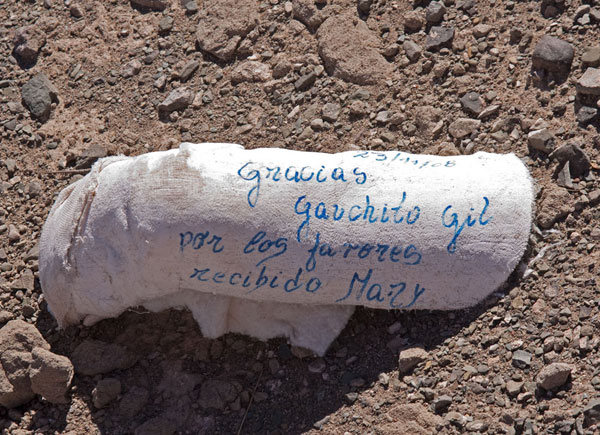 23/11/08
Gracias
Gauchito Gil
por los favores
recibido Mary